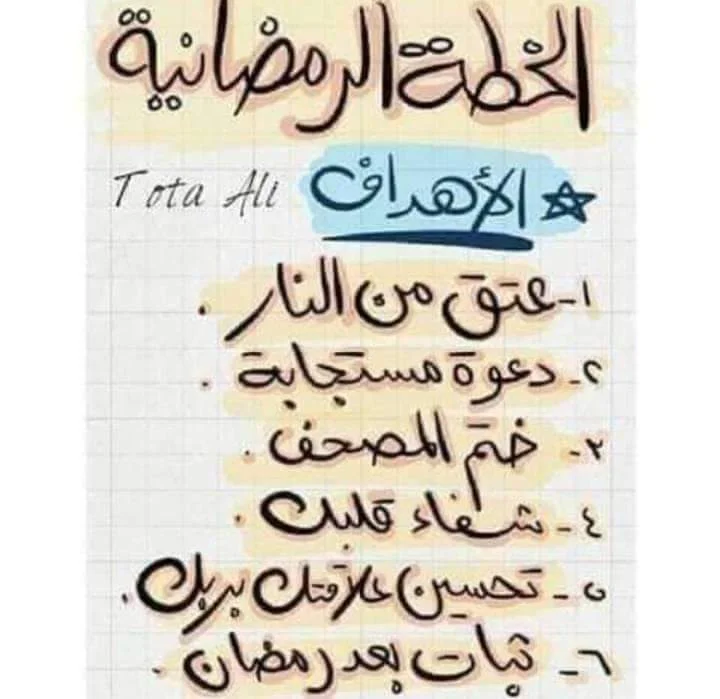 الخطة الرمضانية
☆ الأهداف Tota Ali
١- عتق من النار .
٢- دعوة مستجابة .
٣- ختم المصحف .
٤- شفاء قلبك .
٥- تحسين علاقتك بربك .
٦- ثبات بعد رمضان .